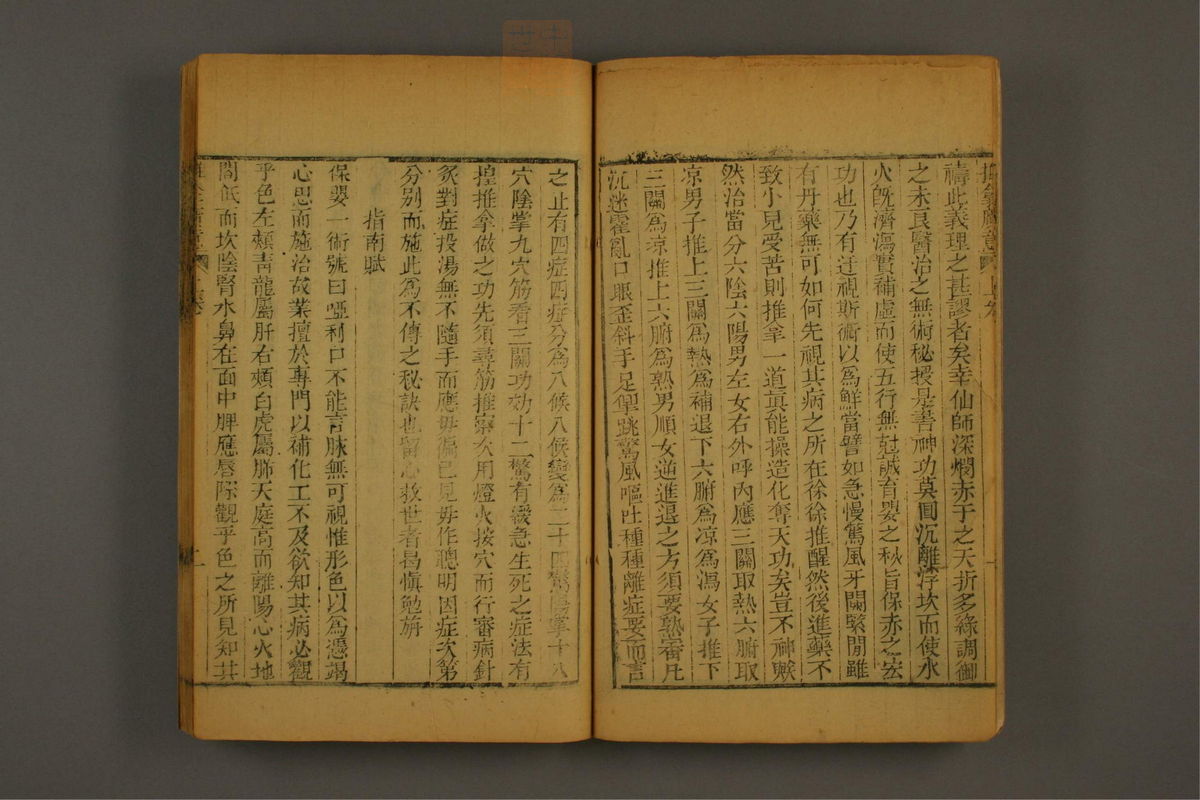 禱此義理之甚謬者矣幸仙師深憫赤子之夭折多緣調御
之未良醫治之無術秘授是書神功莫圓沉離浮坎而使水
火旣濟瀉實補虛而使五行無尅誠育嬰之秋旨保赤之宏
功也乃有迂視斯術以爲鮮當譬如急慢驚風牙關緊閉雖
有丹藥無可如何先視其病之所在徐徐推醒然後進藥不
致小兒受苦則推拿一道眞能操造化奪天功矣豈不神歟
然治當分六陰六陽男左女右外呼內應三關取熱六腑取
凉男子推上三關爲熱爲補退下六腑爲凉爲瀉女子推下
三關爲凉推上六腑爲熟男順女逆進退之方須要熟審凡
沉迷霍亂口眼歪斜手足掣跳驚風嘔吐種種離症要而言
之止有四症四症分爲八候八候變爲二十四驚陽掌十八
穴陰掌九穴筋看三關功効十二驚有緩急生死之症法有
揘推拿做之功先須尋筋推察次用燈火按穴而行審病針
炙對症投湯無不隨手而應毋偏己見毋作聰明因症次第
分别而施此爲不傳之秘訣也留心救世者曷愼勉旃
指南賦
保嬰一術號曰啞科口不能言脉無可視惟形色以爲憑竭
心思而施治故業擅於專門以補化工不及欲知其病必觀
乎色左頰青龍屬肝右頰白虎屬肺天庭高而離陽心火地
閣低而坎陰腎水鼻在面中脾應唇際觀乎色之所見知其